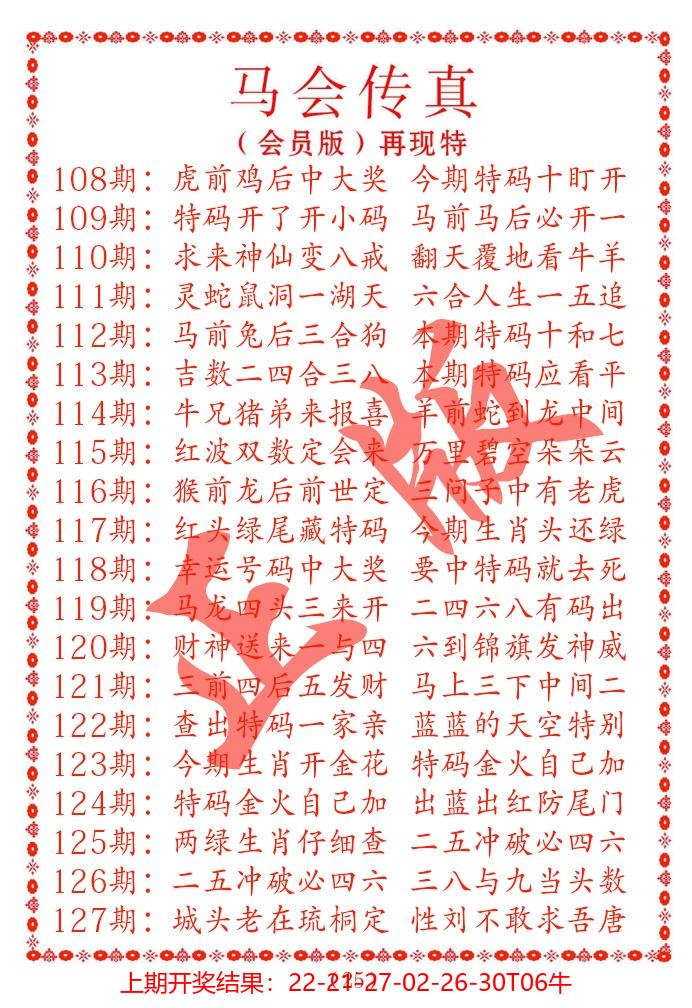 马会传真
（会员版）再现特
108期：虎前鸡后中大奖 今期特码十盯开
109期：特码开了开小码 马前马后必开一
110期：求来神仙变八戒 翻天覆地看牛羊
111期：灵蛇鼠洞一湖天 六合人生一五追
112期：马前兔后三合狗 本期特码十和七
113期：吉数二四合三八 本期特码应看平
114期：牛兄猪弟来报喜 羊前蛇到龙中间
115期：红波双数定会来 万里碧空朵朵云
116期：猴前龙后前世定 三问子中有老虎
117期：红头绿尾藏特码 今期生肖头还绿
118期：幸运号码中大奖 要中特码就去死
119期：马龙四头三来开 二四六八有码出
120期：财神送来一与四 六到锦旗发神威
121期：三前四后五发财 马上三下中间二
122期：查出特码一家亲 蓝蓝的天空特别
123期：今期生肖开金花 特码金火自己加
124期：特码金火自己加 出蓝出红防尾门
125期：两绿生肖仔细查 二五冲破必四六
126期：二五冲破必四六 三八与九当头数
127期：城头老在琉桐定 性刘不敢求吾唐
正版
上期开奖结果：22-21-27-02-26-30T06牛